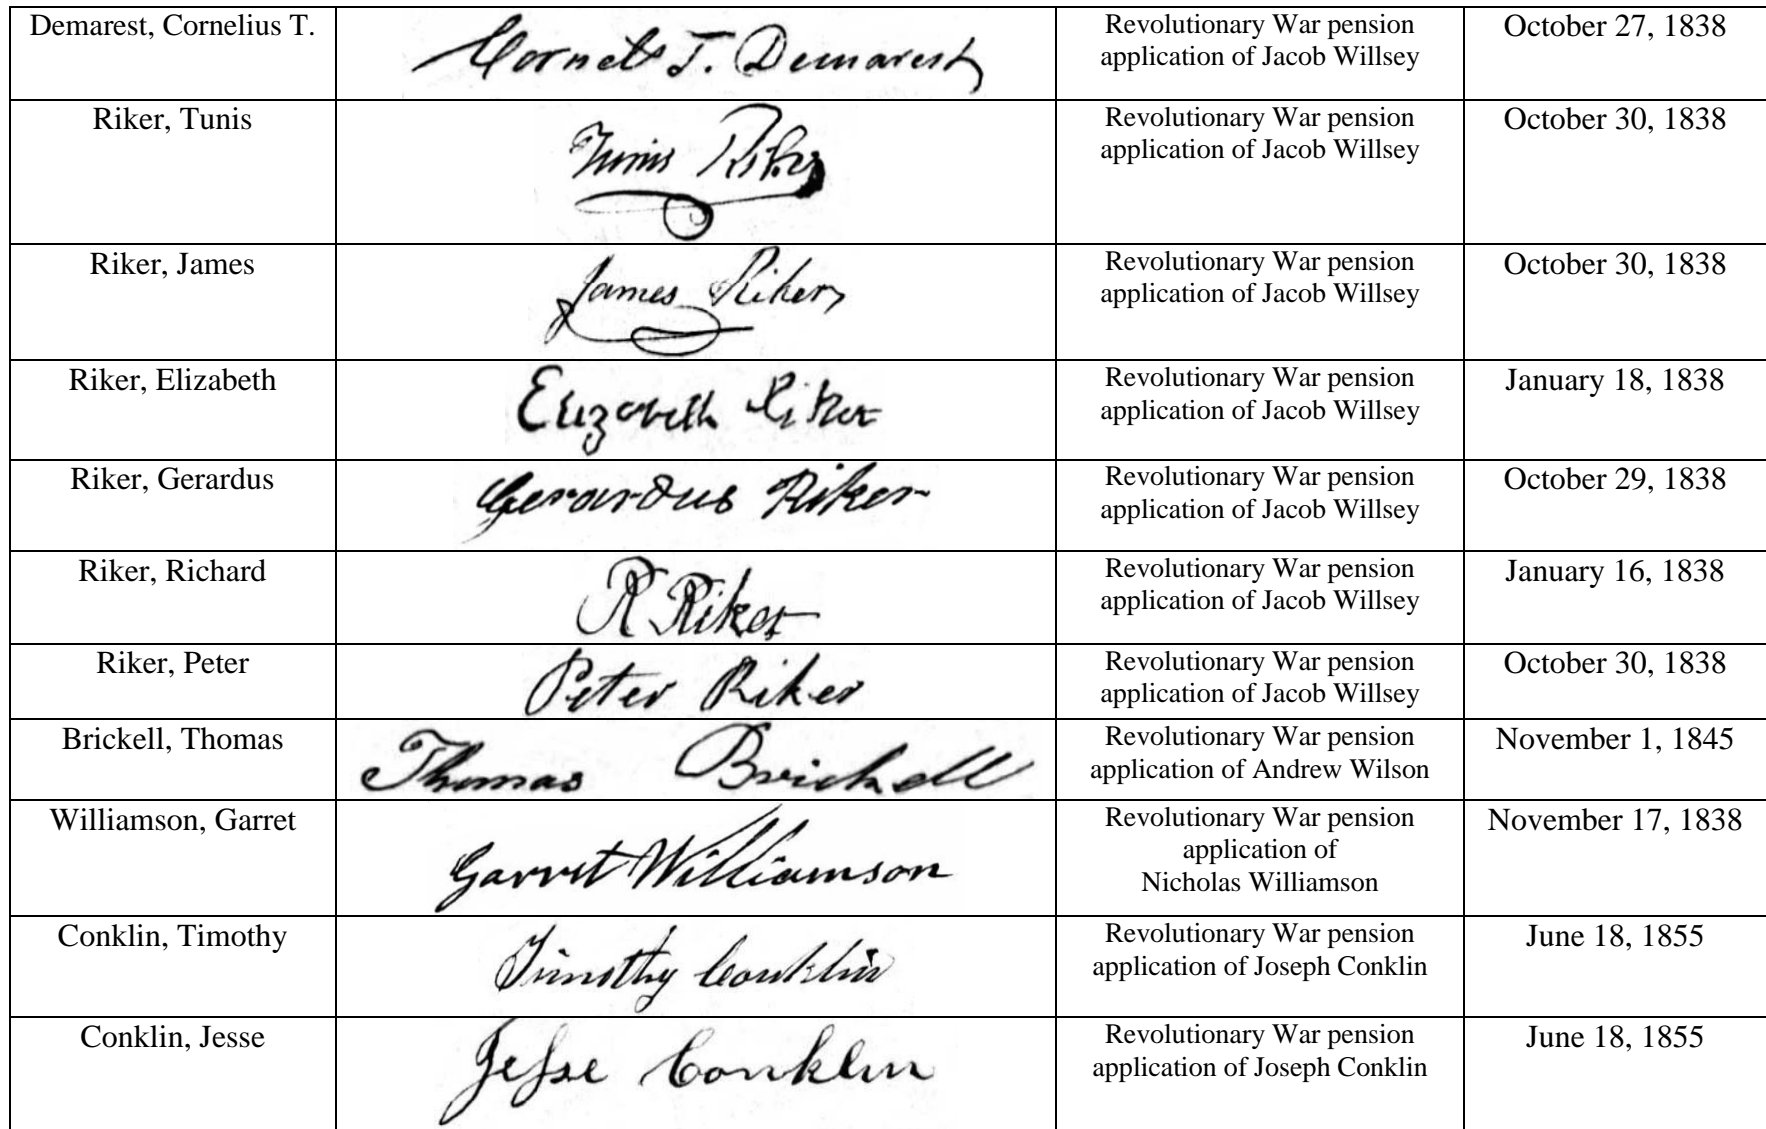 Demarest, Cornelius T.
Cornels T. Demarest
Revolutionary War pension
application of Jacob Willsey
October 27, 1838
Riker, Tunis
Tunis Riker
Revolutionary War pension
application of Jacob Willsey
October 30, 1838
Riker, James
James Riker
Revolutionary War pension
application of Jacob Willsey
October 30, 1838
Riker, Elizabeth
Elizabeth Riker
Revolutionary War pension
application of Jacob Willsey
January 18, 1838
Riker, Gerardus
Gerardus Riker
Revolutionary War pension
application of Jacob Willsey
October 29, 1838
Riker, Richard
R Riker
Revolutionary War pension
application of Jacob Willsey
January 16, 1838
Riker, Peter
Peter Riker
Revolutionary War pension
application of Jacob Willsey
October 30, 1838
Brickell, Thomas
Thomas Brickell
Revolutionary War pension
application of Andrew Wilson
November 1, 1845
Williamson, Garret
Garret Williamson
Revolutionary War pension
application of
Nicholas Williamson
November 17, 1838
Conklin, Timothy
Timothy Conklin
Revolutionary War pension
application of Joseph Conklin
June 18, 1855
Conklin, Jesse
Jesse Conklin
Revolutionary War pension
application of Joseph Conklin
June 18, 1855